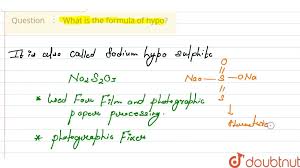 Question : What is the formula of hypo?
It is also called Sodium hypo sulphite
Na₂S₂O₃
O
NaO – S – ONa
S
* Used Four Film and photographic
paper processing.
* photographic Fixer
doubtnut